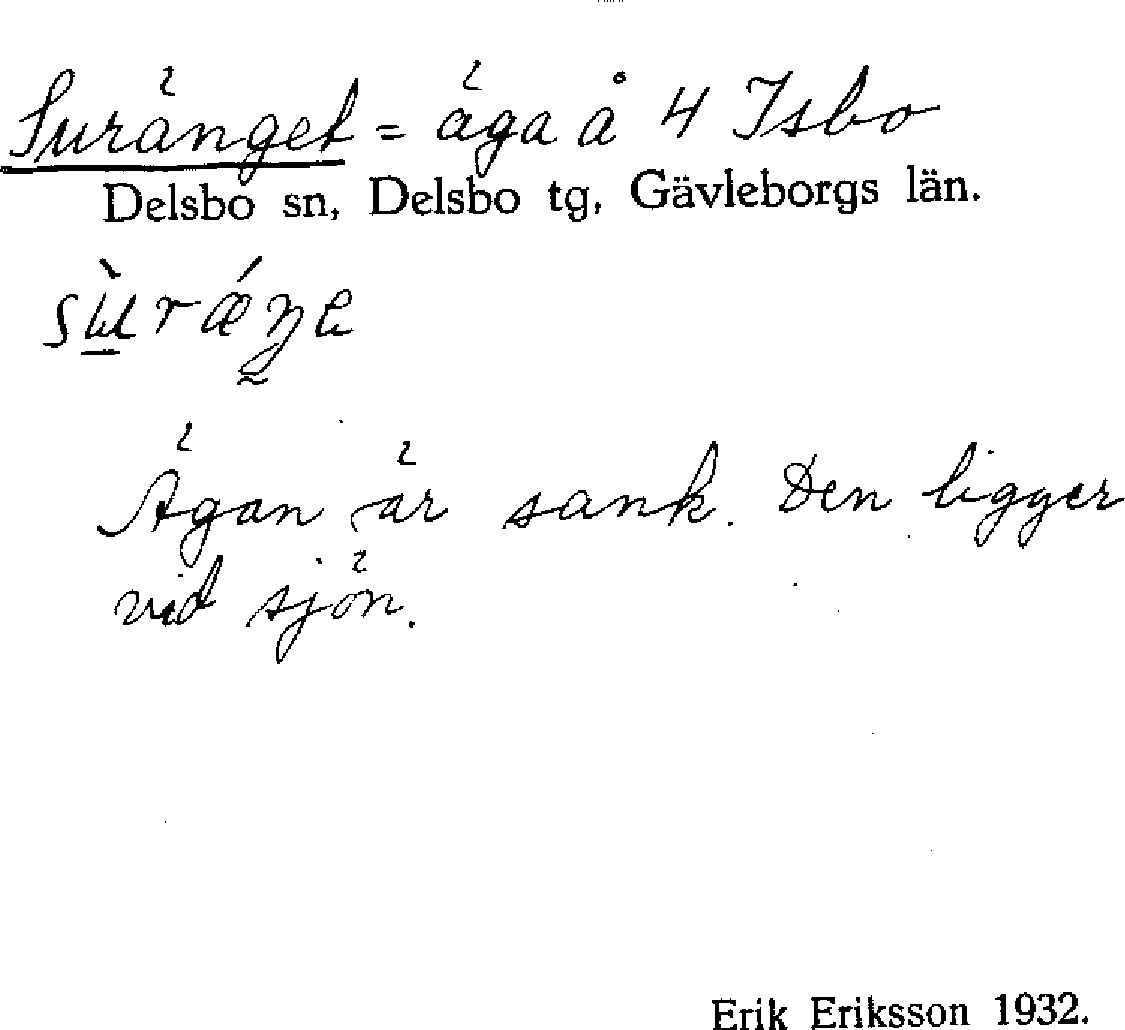 Suränget = äga å 4 Isbo
Delsbo sn, Delsbo tg, Gävleborgs län.
Ägan är sank. Den ligger
vid sjön.
Erik Eriksson 1932.